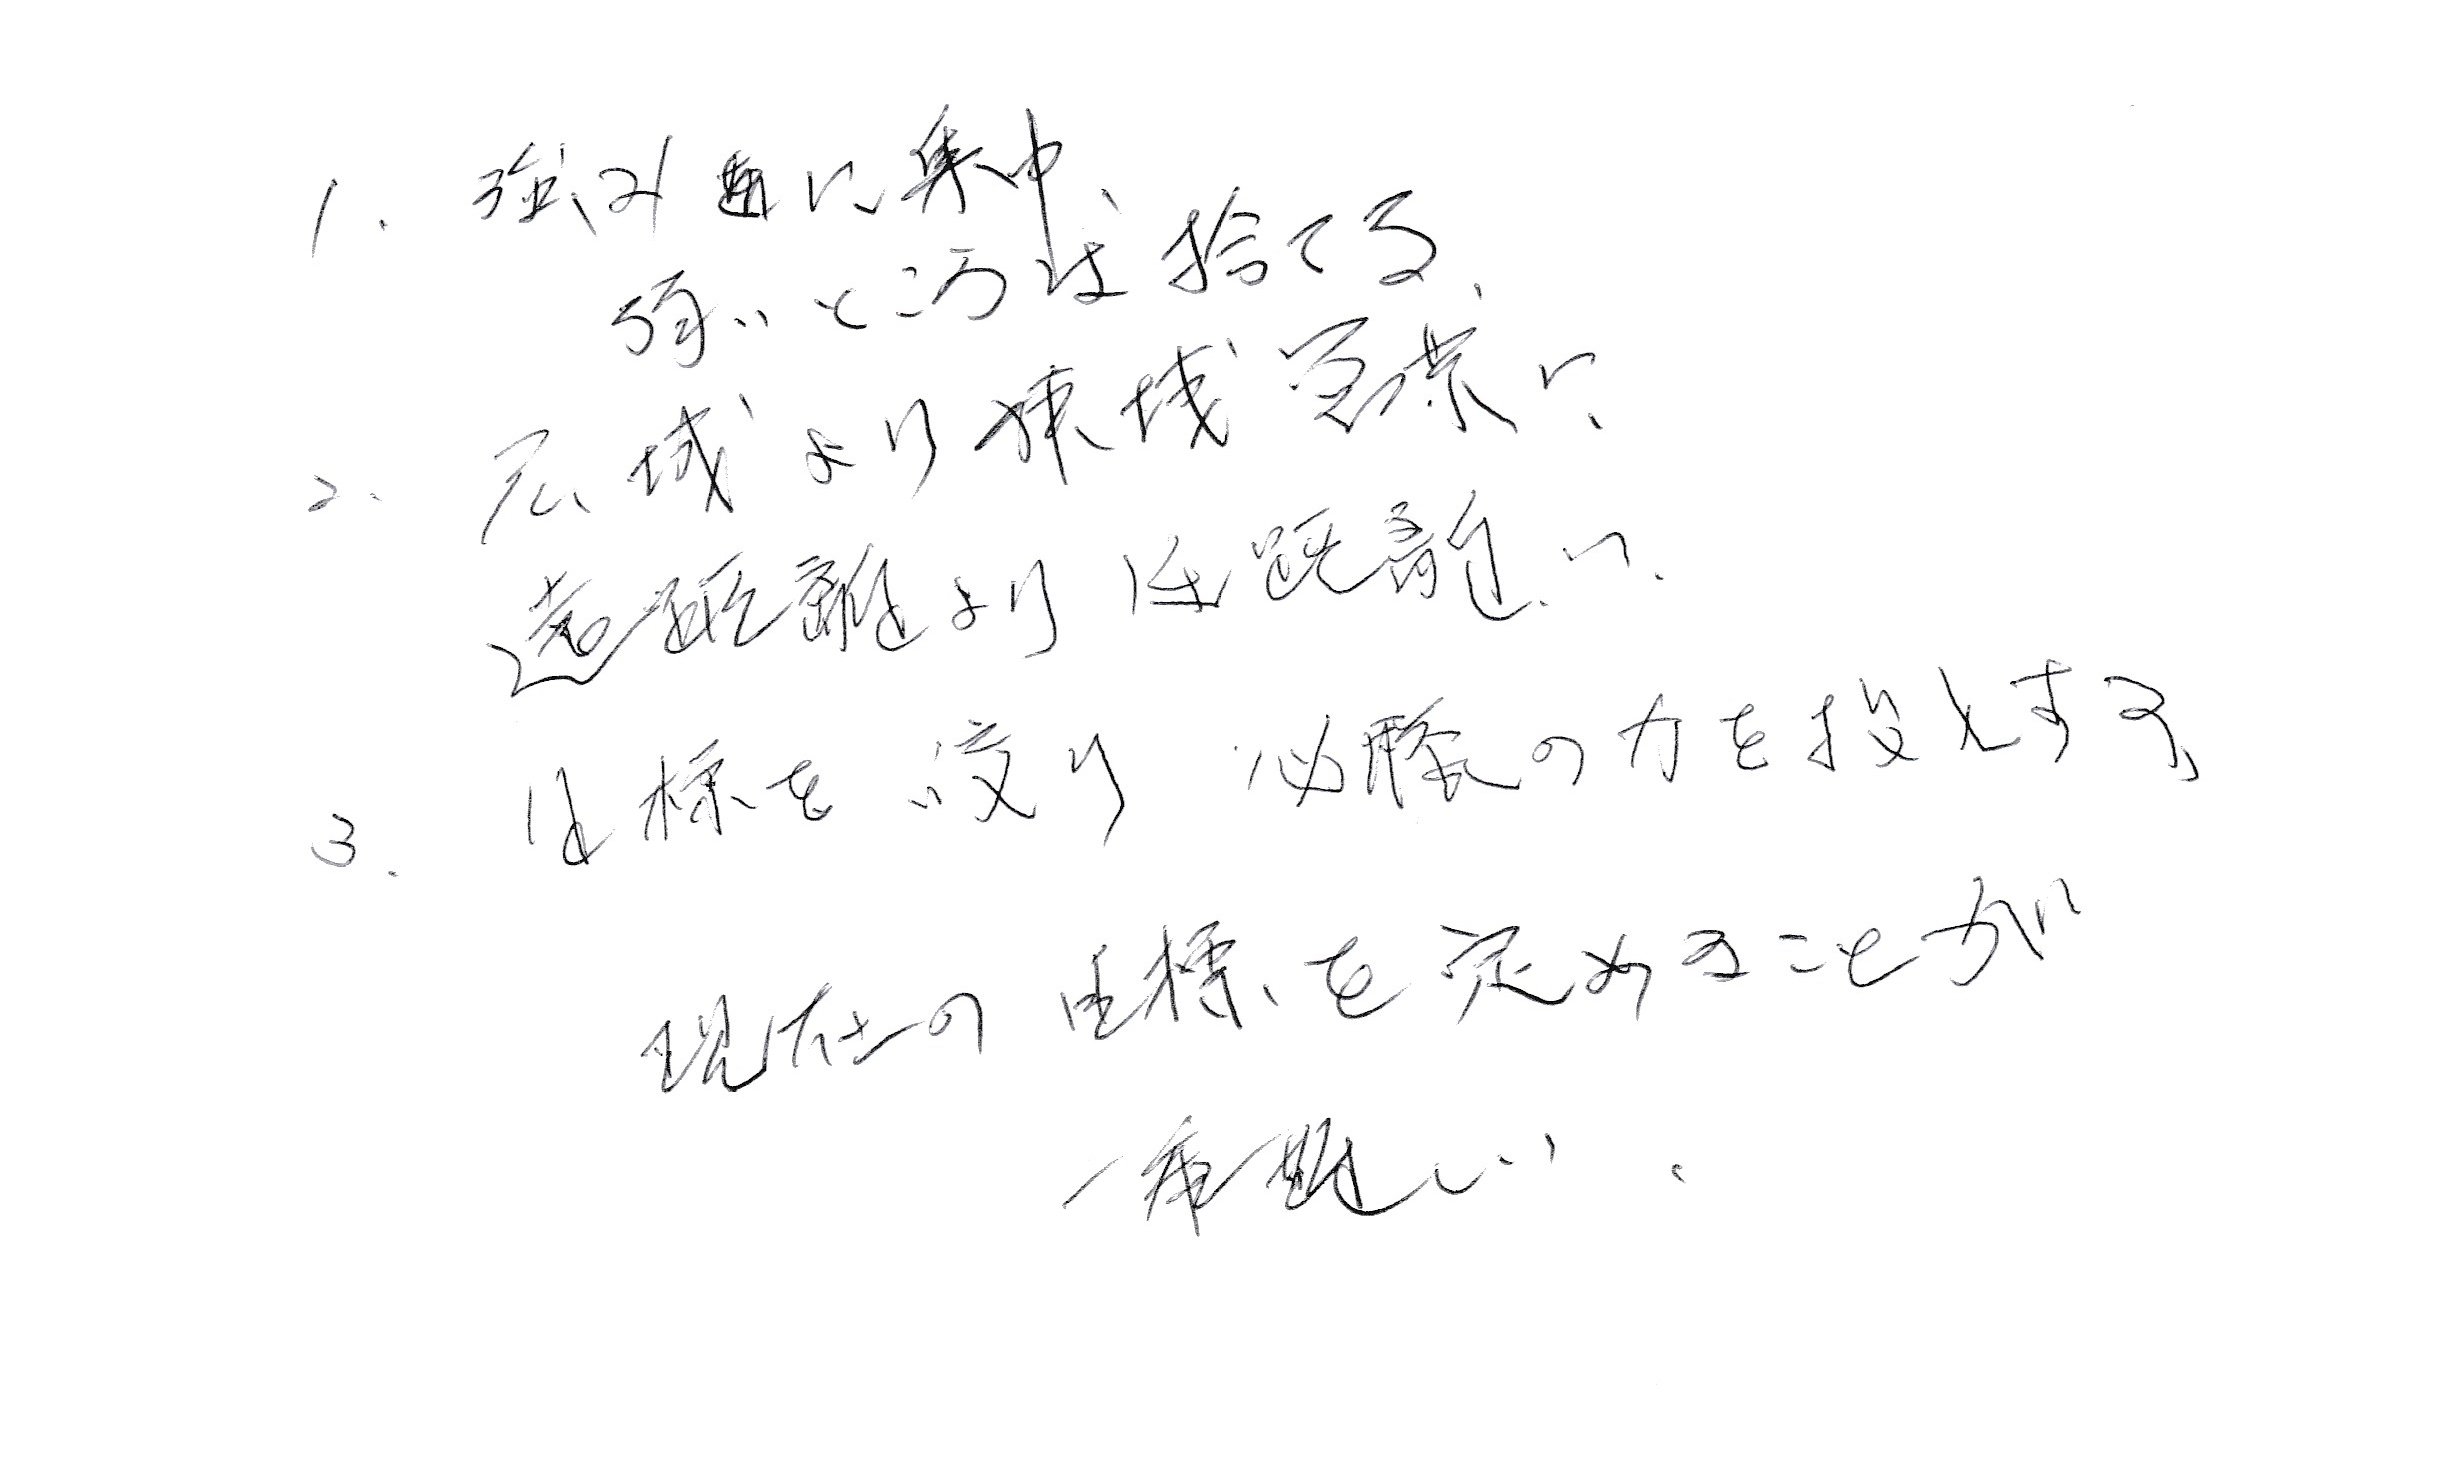 1. 強みに集中、
弱いところは捨てる、
2. 広域より狭域営業に、
遠距離より近距離に、
3. 目標を絞り 必勝の力を投入する、
現在の目標を定めることが
一番難しい、